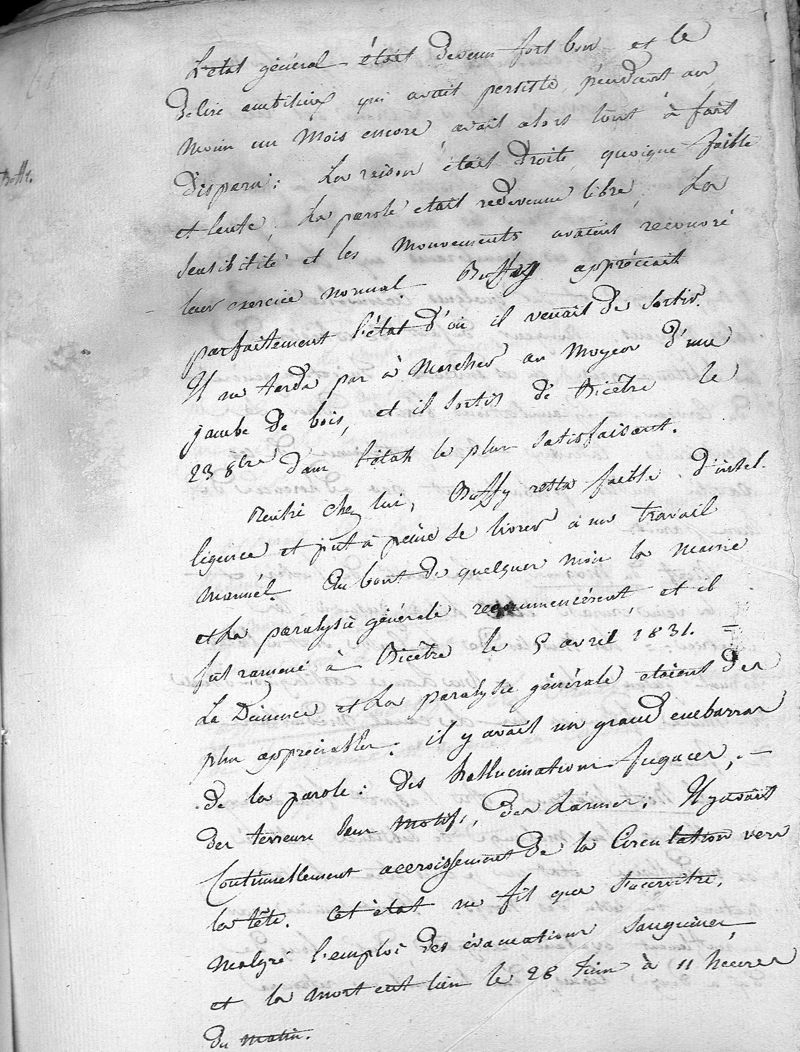 L'état général était devenu fort bon et le
délire ambitieux qui avait persisté pendant au
moins un mois encore avait alors tout à fait
disparu : La raison était droite, quoique faible
et lente, La parole était redevenue libre, La
sensibilité et les mouvements avaient recouvré
leur exercice normal Buffy appréciait
parfaitement l'état d'où il venait de sortir.
Il ne tarda pas à marcher au moyen d'une
jambe de bois, et il sortit de Bicêtre le
23 8bre dans l'état le plus satisfaisant.
Rentré chez lui, Buffy resta faible d'intel-
ligence et put à peine se livrer à un travail
manuel. Au bout de quelques mois la manie
et la paralysie générale recommencèrent, et il
fut ramené à Bicêtre le 5 avril 1831. -
La Démence et La paralysie générale étaient des
plus appréciables : il y avait un grand embarras
de la parole : des hallucinations fugaces, -
des terreurs sans motifs, des larmes. Il y avait
continuellement accroissement de la circulation vers
la tête. Cet état ne fit que s'accroître,
malgré l'emploi des évacuations sanguines,
et la mort eut lieu le 28 Juin à 11 heures
du matin.